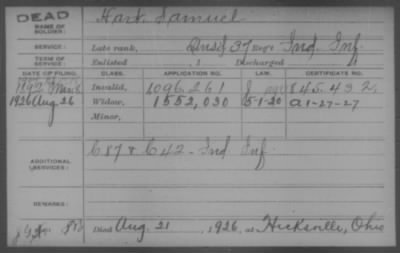 DEAD
NAME OF SOLDIER: Hart Samuel
SERVICE: Late rank, 37 Reg't Ind. Inf.
TERM OF SERVICE: Enlisted , 1 Discharged
DATE OF FILING. CLASS. APPLICATION NO. LAW. CERTIFICATE NO.
Invalid, 1096.261 845.432.
1926 Aug. 26 Widow, 1552,030 5-1-20 A 1-27-27
Minor,
ADDITIONAL SERVICES: C 87 & C 42 - Ind Inf.
REMARKS:
Died Aug. 21, 1926, at Hicksville, Ohio